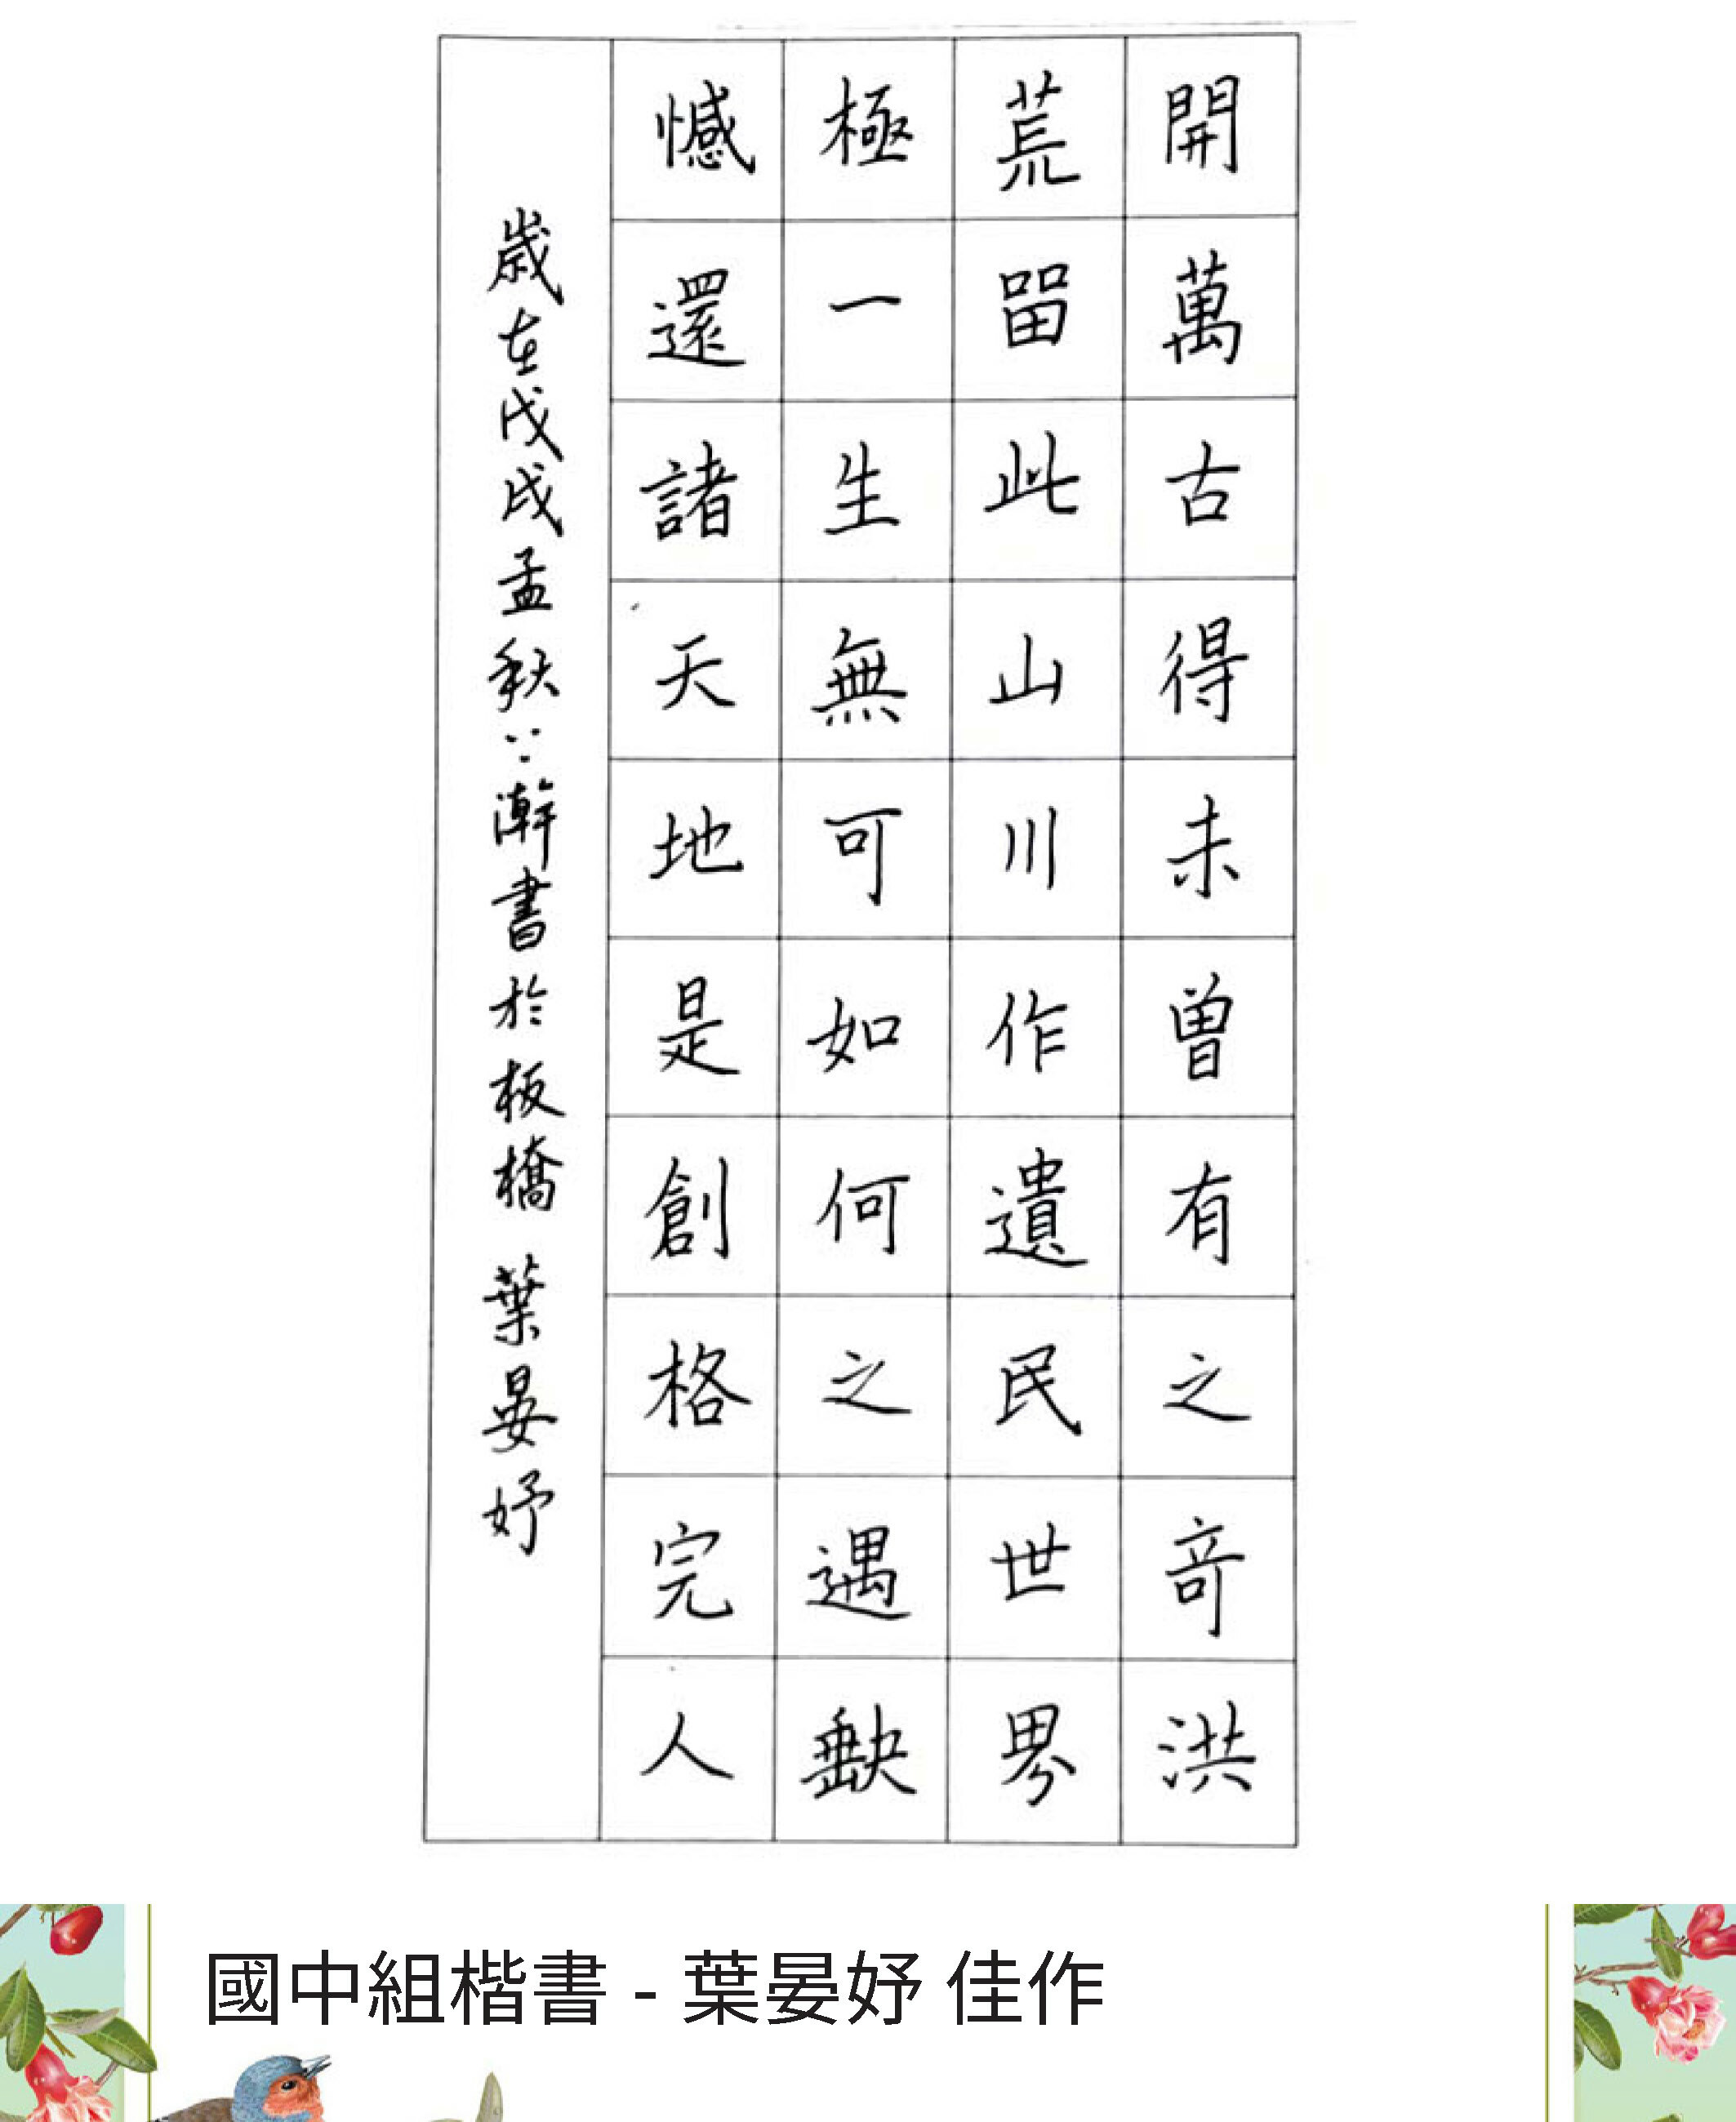 開萬古得未曾有之竒洪
荒留此山川作遺民世界
極一生無可如何之遇缺
憾還諸天地是創格完人
歲在戊戌孟秋下澣書於板橋 葉晏妤
國中組楷書 - 葉晏妤 佳作